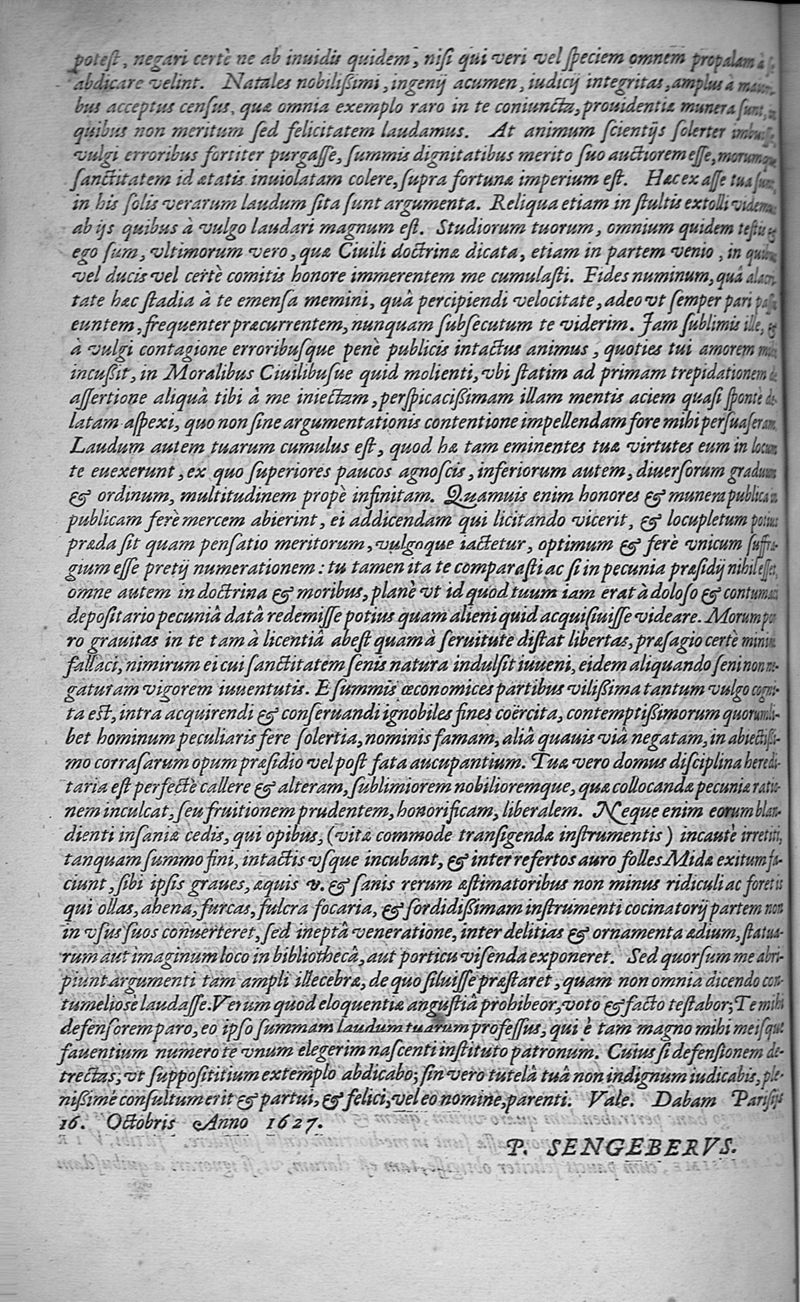 potest, negari certè ne ab inuidis quidem, nisi qui veri vel speciem omnem propalam à
abdicare velint. Natales nobilißimi, ingenij acumen, iudicij integritas, amplus à
bus acceptus census, quæ omnia exemplo raro in te coniuncta, prouidentiæ munera sunt, in
quibus non meritum sed felicitatem laudamus. At animum scientijs solerter
vulgi erroribus fortiter purgasse, summis dignitatibus merito suo auctiorem esse,
sanctitatem id ætatis inuiolatam colere, supra fortunæ imperium est. Hæc ex asse tua
in his solis verarum laudum sita sunt argumenta. Reliqua etiam in stultis extolli
ab ijs quibus à vulgo laudari magnum est. Studiorum tuorum, omnium quidem testis &
ego sum, vltimorum vero, quæ Ciuili doctrinæ dicata, etiam in partem venio, in
vel ducis vel certè comitis honore immerentem me cumulasti. Fides numinum, quâ
tate hæc stadia à te emensa memini, quâ percipiendi velocitate, adeo vt semper pari
euntem, frequenter præcurrentem, nunquam subsecutum te viderim. Iam sublimis ille, &
à vulgi contagione erroribusque penè publicis intactus animus, quoties tui amorem
incußit, in Moralibus Ciuilibusue quid molienti, vbi statim ad primam trepidationem de
assertione aliquâ tibi à me iniectam, perspicacißimam illam mentis aciem quasi sponte de-
latam aspexi, quo non sine argumentationis contentione impellendam fore mihi persuaseram.
Laudum autem tuarum cumulus est, quod hæ tam eminentes tuæ virtutes eum in locum
te euexerunt, ex quo superiores paucos agnoscis, inferiorum autem, diuersorum graduum
& ordinum, multitudinem propè infinitam. Quamuis enim honores & munera publica in
publicam ferè mercem abierint, ei addicendam qui licitando vicerit, & locupletum potius
præda sit quam pensatio meritorum, vulgoque iactetur, optimum & ferè vnicum suffra-
gium esse pretij numerationem: tu tamen ita te comparasti ac si in pecunia præsidij nihil esset,
omne autem in doctrina & moribus, planè vt id quod tuum iam erat à doloso & contumaci
depositario pecuniâ datâ redemisse potius quam alieni quid acquisiuisse videare. Morum po-
ro grauitas in te tam à licentiâ abest quam à seruitute distat libertas, præsagio certè minimè
fallaci, nimirum ei cui sanctitatem senis natura indulsit iuueni, eidem aliquando seni non ne-
gaturam vigorem iuuentutis. E summis œconomices partibus vilißima tantum vulgo cogni-
ta est, intra acquirendi & conseruandi ignobiles fines coërcita, contemptißimorum quorumli-
bet hominum peculiaris fere solertia, nominis famam, aliâ quauis viâ negatam, in abiectißi-
mo corrasarum opum præsidio vel post fata aucupantium. Tuæ vero domus disciplina heredi-
taria est perfectè callere & alteram, sublimiorem nobilioremque, quæ collocandæ pecuniæ ratio-
nem inculcat, seu fruitionem prudentem, honorificam, liberalem. Neque enim eorum blan-
dienti insaniæ cedis, qui opibus, (vitæ commode transigendæ instrumentis) incautè irretiti,
tanquam summo fini, intactis vsque incubant, & inter refertos auro folles Midæ exitum fa-
ciunt, sibi ipsis graues, æquis v. & sanis rerum æstimatoribus non minus ridiculi ac foret is
qui ollas, ahena, furcas, fulcra focaria, & sordidißimam instrumenti cocinatorij partem non
in vsus suos conuerteret, sed ineptâ veneratione, inter delitias & ornamenta ædium, statua-
rum aut imaginum loco in bibliothecâ, aut porticu visenda exponeret. Sed quorsum me abri-
piunt argumenti tam ampli illecebræ, de quo siluisse præstaret, quam non omnia dicendo con-
tumeliosè laudasse. Verum quod eloquentiæ angustiâ prohibeor, voto & facto testabor; Te mihi
defensorem paro, eo ipso summam laudum tuarum professus, qui è tam magno mihi meisque
fauentium numero te vnum elegerim nascenti instituto patronum. Cuius si defensionem de-
trectas, vt supposititium extemplo abdicabo; sin vero tutelâ tuâ non indignum iudicabis, ple-
nißimè consultum erit & partui, & felici, vel eo nomine, parenti. Vale. Dabam Parisijs
16. Octobris Anno 1627.
P. SENGEBERVS.